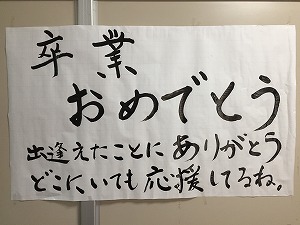 卒業
おめでとう
出逢えたことにありがとう
どこにいても応援してるね。